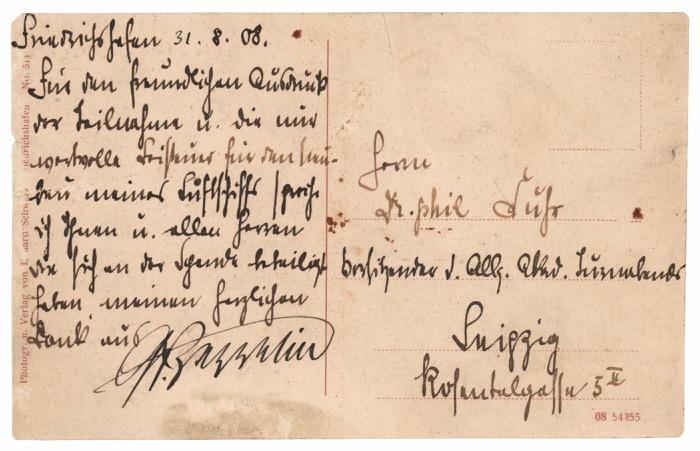 Friedrichshafen 31. 8. 08.
Für den freundlichen Ausdruck
der Teilnahme u. die mir
wertvolle Beisteuer für den Neu-
bau meines Luftschiffs spreche
ich Ihnen u. allen Herren
die sich an der Spende beteiligt
haben meinen herzlichen
Dank aus
Gf. Zeppelin
Photogr. u. Verlag von
No. 51
Herrn
Dr. phil Fuhr
Vorsitzender d. Allg. Akad. Turnabends
Leipzig
Rosentalgasse 5 II
08 54255